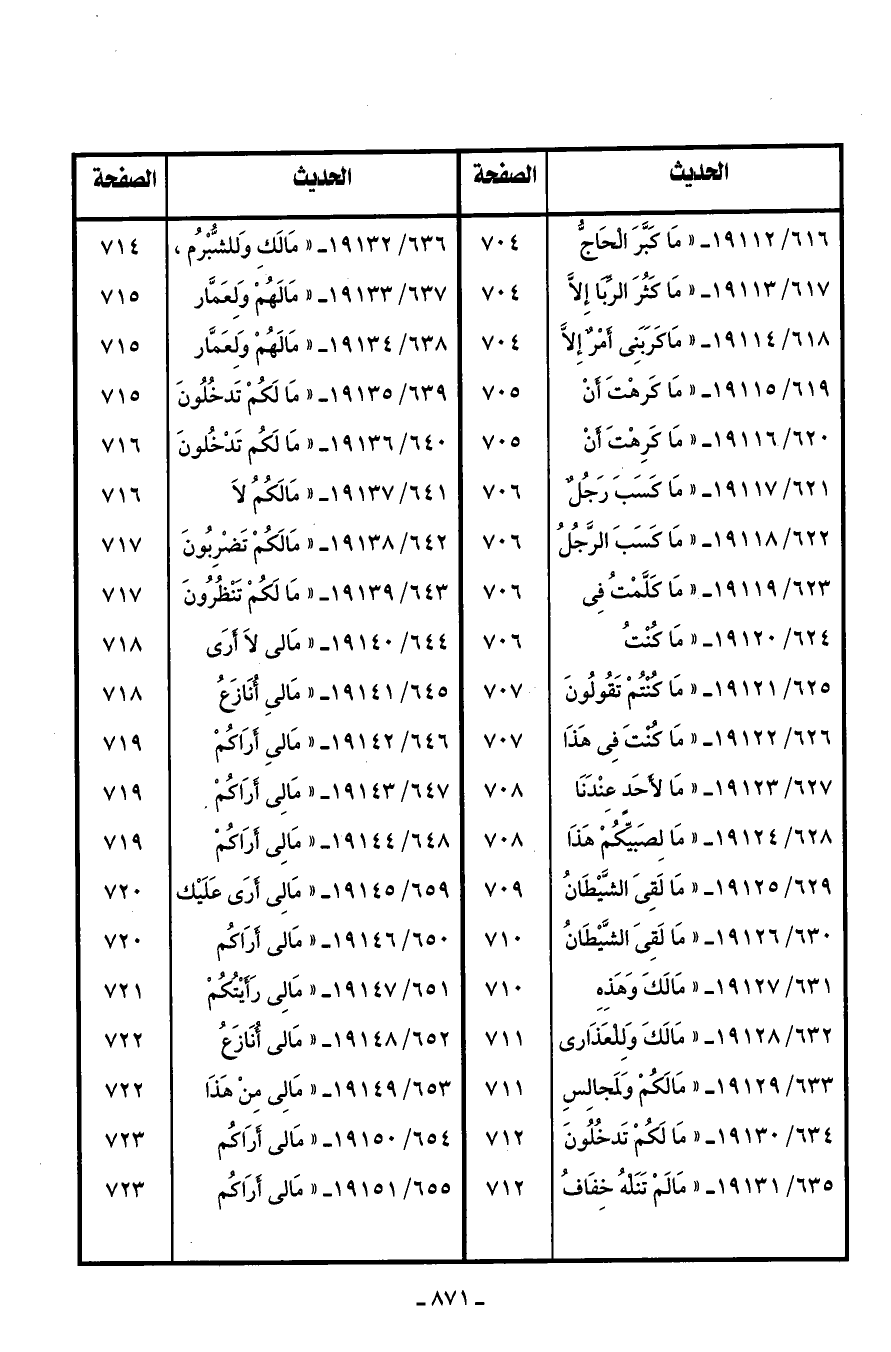 الحديث الصفحة
٦١٦/ ١٩١١٢ـ « مَا كَبَّرَ الْحَاجُّ ٧٠٤
٦١٧/ ١٩١١٣ـ « مَا كَثُرَ الرِّبَا إِلاَّ ٧٠٤
٦١٨/ ١٩١١٤ـ « مَاكَرَبَنِى أَمْرٌ إِلاَّ ٧٠٤
٦١٩/ ١٩١١٥ـ « مَا كَرِهْتَ أَنْ ٧٠٥
٦٢٠/ ١٩١١٦ـ « مَا كَرِهْتَ أَنْ ٧٠٥
٦٢١/ ١٩١١٧ـ « مَا كَسَبَ رَجُلٌ ٧٠٦
٦٢٢/ ١٩١١٨ـ « مَا كَسَبَ الرَّجُلُ ٧٠٦
٦٢٣/ ١٩١١٩ـ « مَا كَلَّمْتُ فِى ٧٠٦
٦٢٤/ ١٩١٢٠ـ « مَا كُنْتُ ٧٠٦
٦٢٥/ ١٩١٢١ـ « مَا كُنْتُمْ تَقُولُونَ ٧٠٧
٦٢٦/ ١٩١٢٢ـ « مَا كُنْتَ فِى هَذَا ٧٠٧
٦٢٧/ ١٩١٢٣ـ « مَا لأَحَدٍ عِنْدَنَا ٧٠٨
٦٢٨/ ١٩١٢٤ـ « مَا لِصَبِيِّكُمْ هَذَا ٧٠٨
٦٢٩/ ١٩١٢٥ـ « مَا لَقِىَ الشَّيْطَانُ ٧٠٩
٦٣٠/ ١٩١٢٦ـ « مَا لَقِىَ الشَّيْطَانُ ٧١٠
٦٣١/ ١٩١٢٧ـ « مَالَكَ وَهَذِهِ ٧١٠
٦٣٢/ ١٩١٢٨ـ « مَالَكَ وَلِلْعَذَارى ٧١١
٦٣٣/ ١٩١٢٩ـ « مَالَكُمْ وَلَمَجالِسِ ٧١١
٦٣٤/ ١٩١٣٠ـ « مَا لَكُمْ تَدخُلُونَ ٧١٢
٦٣٥/ ١٩١٣١ـ « مَالَمْ تَنَلْهُ خِفَافُ ٧١٢
الحديث الصفحة
٦٣٦/ ١٩١٣٢ـ « مَالَكِ وَللشُّبْرُم ، ٧١٤
٦٣٧/ ١٩١٣٣ـ « مَالَهُمْ وَلِعَمَّار ٧١٥
٦٣٨/ ١٩١٣٤ـ « مَالَهُمْ وَلِعَمَّار ٧١٥
٦٣٩/ ١٩١٣٥ـ « مَا لَكُمْ تَدخُلُونَ ٧١٥
٦٤٠/ ١٩١٣٦ـ « مَا لَكُم تَدْخُلُونَ ٧١٦
٦٤١/ ١٩١٣٧ـ « مَالَكُمُ لاَ ٧١٦
٦٤٢/ ١٩١٣٨ـ « مَالَكُمْ تَضْرِبُونَ ٧١٧
٦٤٣/ ١٩١٣٩ـ « مَا لَكُمْ تَنْظُرُونَ ٧١٧
٦٤٤/ ١٩١٤٠ـ « مَالى لاَ أَرَى ٧١٨
٦٤٥/ ١٩١٤١ـ « مَالىِ أُنَازَعُ ٧١٨
٦٤٦/ ١٩١٤٢ـ « مَالىِ أَرَاكُمْ ٧١٩
٦٤٧/ ١٩١٤٣ـ « مَالى أَرَاكُمْ ٧١٩
٦٤٨/ ١٩١٤٤ـ « مَالى أَرَاكُمْ ٧١٩
٦٥٩/ ١٩١٤٥ـ « مَالِى أَرَى عَلَيْك ٧٢٠
٦٥٠/ ١٩١٤٦ـ « مَالى أَرَاكُم ٧٢٠
٦٥١/ ١٩١٤٧ـ « مَالِى رَأَيْتُكُمْ ٧٢١
٦٥٢/ ١٩١٤٨ـ « مَالى أُنَازَعُ ٧٢٢
٦٥٣/ ١٩١٤٩ـ « مَالِى مِنْ هَذَا ٧٢٢
٦٥٤/ ١٩١٥٠ـ « مَالى أَرَاكُم ٧٢٣
٦٥٥/ ١٩١٥١ـ « مَالى أَرَاكُم ٧٢٣
ـ ٨٧١ ـ